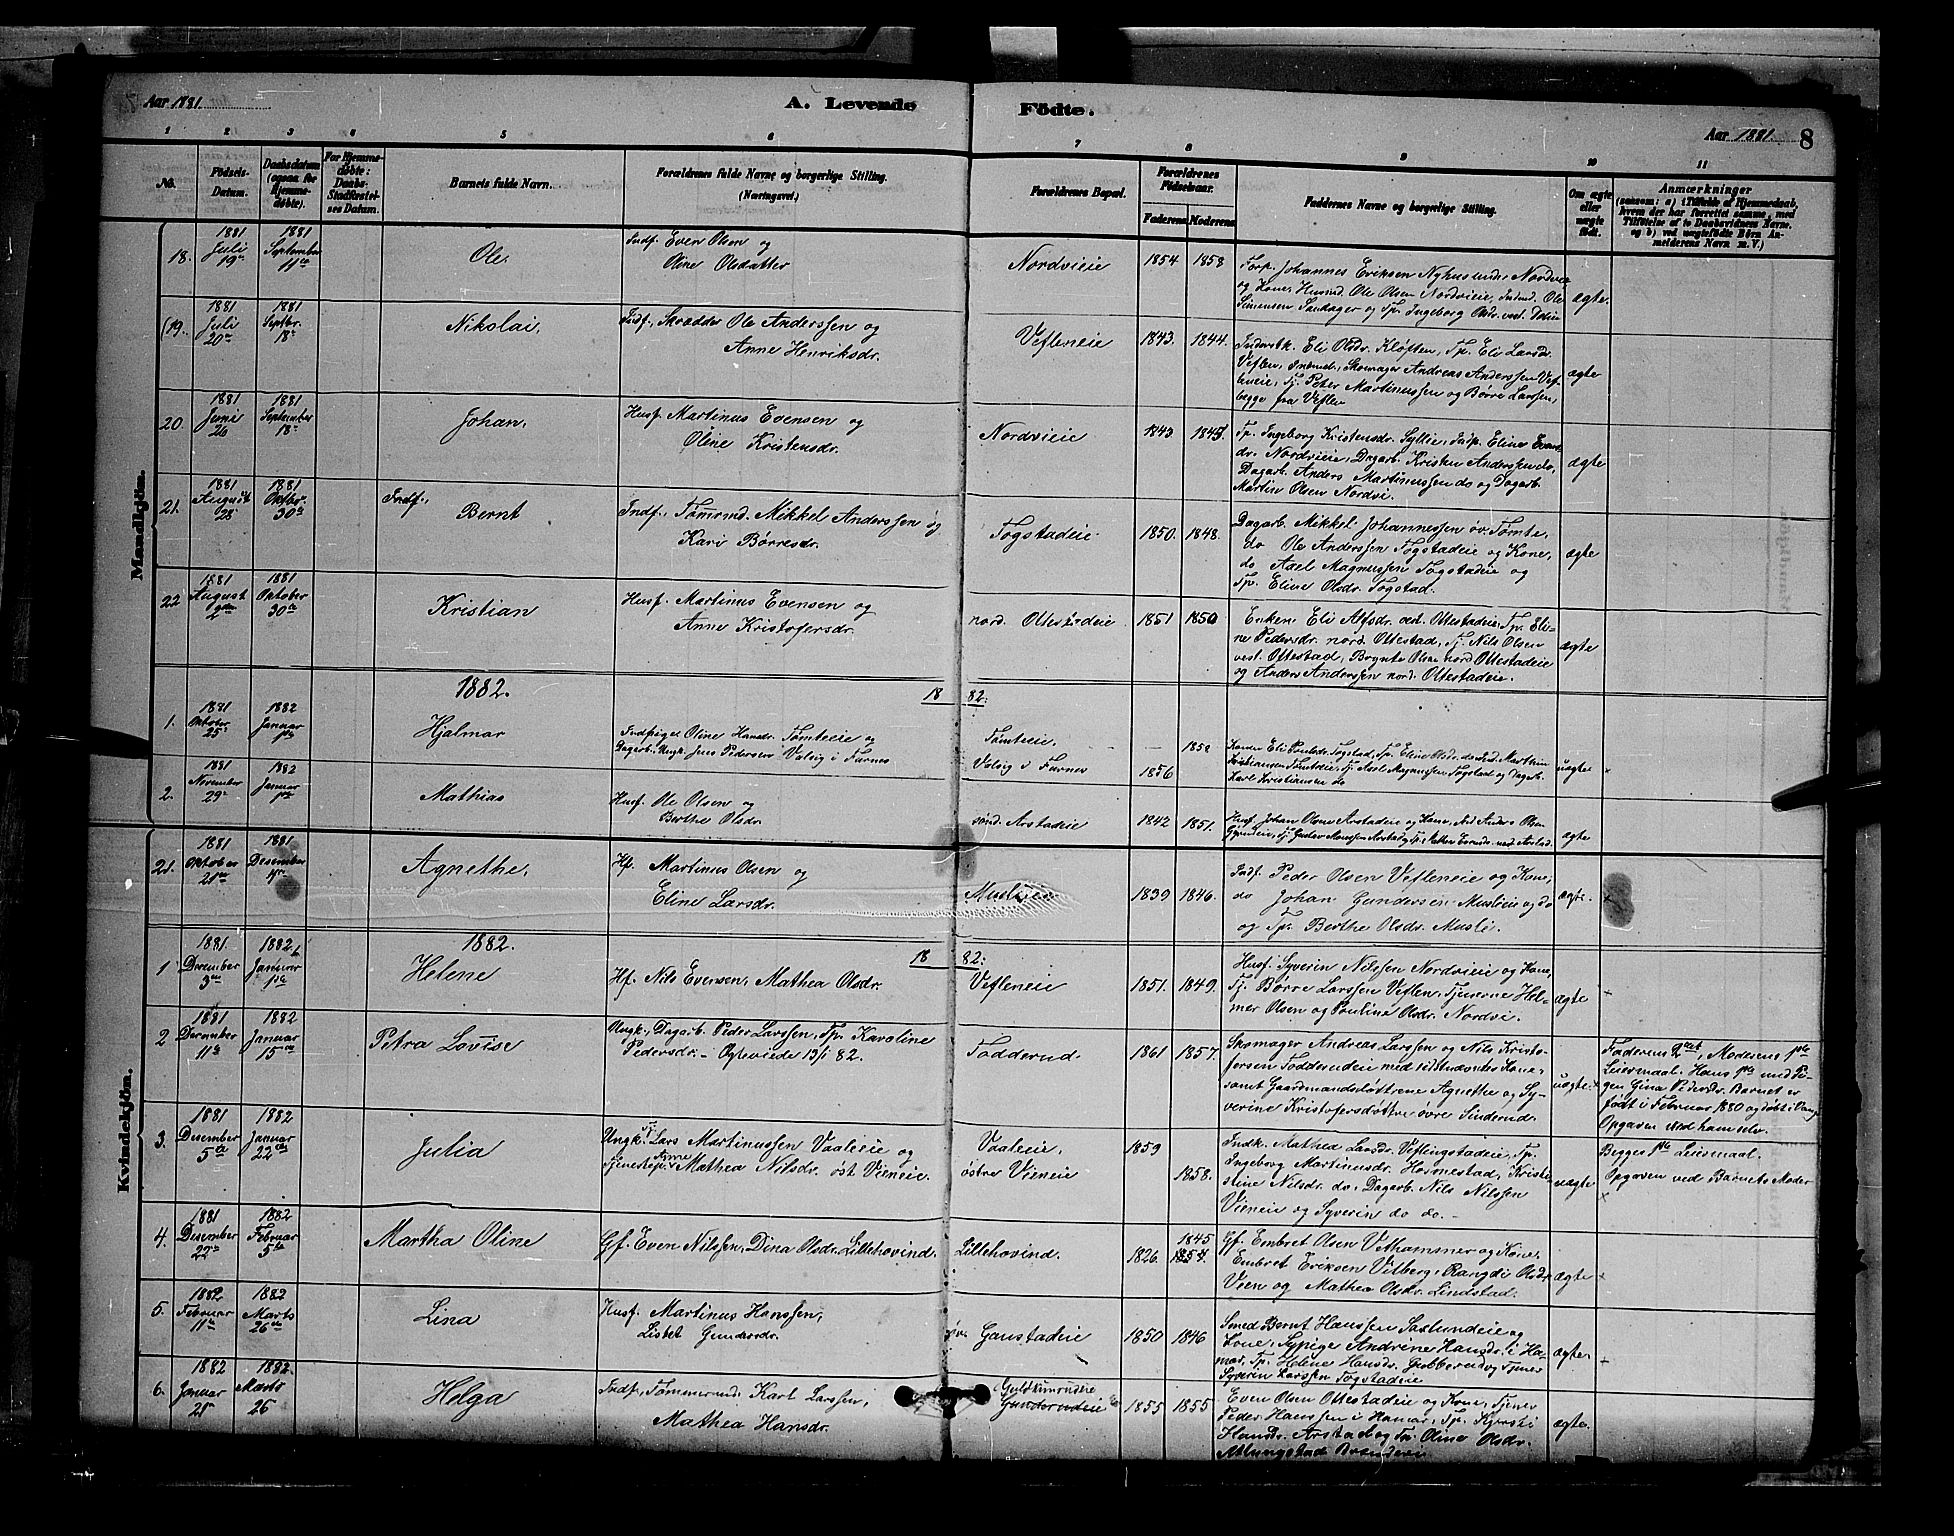 Aar 1881.
A. Levende Födte.
Aar 1881. 8
1 2 3 4 5 6 7 8 9 10 11
No.
Födsels-Datum.
Daabsdatum (ogsaa for Hjemmedöbte).
For Hjemmedöbte: Daabs-Stadfæstelses Datum.
Barnets fulde Navn.
Forældrenes fulde Navne og borgerlige Stilling. (Næringsvei.)
Forældrenes Bopæl.
Forældrenes Födselsaar.
Faderens Moderens
Faddernes Navne og borgerlige Stilling.
Om ægte eller uægte födt.
Anmærkninger
(saasom: a) i Tilfælde af Hjemmedaab,
hvem der har forrettet samme, med
Tilföielse af to Daabsvidners Navne,
og b) ved uægtefödte Börn An-
melderens Navn m. V.)
Mandkjön.
18. 1881 Juli 19de 1881 September 11te Ole. Indf. Even Olsen og Oline Olsdatter Nordvieie 1854 1858
Forp. Johannes Eriksen Nyhuslund, Nordvieie
og Kone, Husmd. Ole Olsen Nordvieie, Indmd. Ole
Simensen Sandager og Tp. Ingeborg Olsdr. vest.
ægte
19. 1881 Juli 20de 1881 Septbr. 18de Nikolai. Indf., Skrædder Ole Anderssen og Anne Henriksdr. Vefleneie 1843. 1844.
Inderstk. Eli Olsdr. Kløften, Tp. Eli Larsdr.
Veflen, Indmd., Skomager Andreas Anderssen Vef-
leneie, Tj. Peter Martinussen og Børre Larssen,
begge fra Veflen
ægte
20. 1881 Juni 26 1881 September 18de Johan. Husf. Martinus Evensen og Oline Kristensdr. Nordvieie 1843 1845
Tp. Ingeborg Kristensdr. Syllie, Indp. Eline Evens-
dr. Nordvieie, Dagarb. Kristen Anderssen do,
Dagarb. Anders Martinussen do og Dagarb.
Martin Olsen Nordvi.
ægte
21. 1881 August 28de 1881 Oktbr. 30te Indf., Bernt Indf., Tømrmd. Mikkel Anderssen og Kari Børresdr. Togstadeie 1850. 1848.
Dagarb. Mikkel Johannessen øv. Tømte,
do Ole Anderssen Togstadeie og Kone,
do Axel Magnussen Togstadeie og
Tp. Eline Olsdr. Togstad.
ægte
22 1881 August 2den 1881 Oktober 30te Kristian Husf. Martinus Evensen og Anne Kristofersdr. nord. Ottestadeie 1851 1850
Enken Eli Alfsdr. vest. Ottestadeie, Tp. Eli-
ne Pedersdr. nord. Ottestad, Tj. Nils Olsen
vest. Ottestad, Brynte Olsen nord Ottestadeie
og Anders Anderssen nord. Ottestadeie.
ægte
1882. 18 82.
1. 1881 Oktober 25de 1882 Januar 1ste Hjalmar Indpige Oline Hansdr. Tømteeie og
Dagarb., Ungk. Jens Pedersen Valsig i Furnes
Tømteeie. Valsig i Furnes 1856 1858
Konen Eli Paulsdr. Togstad, Tp. Eline Olsdr. do, Indmd. Martin
Kristiansen Tømteeie, Tj. Axel Magnussen Togstad og Dagarb.
Karl Kristiansen do
uægte
2. 1881 November 29de 1882 Januar 1ste Mathias Husf. Ole Olsen og Berthe Olsdr. nord. Arstadeie 1842 1851.
Husf. Johan Olsen Arstadeie og Kone, Anders Olsen
ægte
Kvindekjön.
21. 1881 Oktober 21de 1881 Desember Agnethe. Hf. Martinus Olsen og Eline Larsdr. Muslieie 1839 1846.
Indf. Peder Olsen Vefleneie og Kone,
do Johan Gundersen Muslieie og do
og Tp. Berthe Olsdr. Musli.
ægte.
1882. 18 82.
1 1881. December 3die 1882 Januar 1ste Helene Hf. Nils Evensen, Mathea Olsdr. Vefleneie 1851. 1849.
Husf. Syverin Nilssen Nordvieie og Kone,
Tj. Børre Larssen Veflen, Tjenerne Hel-
mer Olsen og Pauline Olsdr. Nordvi.
ægte
2 1881 December 11te 1882 Januar 15de Petra Lovise Ungk., Dagarb. Peder Larssen, Tp. Karoline
Pedersdr. – Ægteviede 13/1 82. Fodderud. 1861 1857.
Skomager Andreas Larssen og Nils Kristo-
fersen Fodderudeie med sidstnævntes Kone
samt Gaardmandsdøttrene Agnethe og Sy-
verine Kristofersdøttre øvre Sinderud.
uægte.
Faderens 2det, Moderens 1ste
Leiermaal. Hans 1ste med Pi-
gen Gina Pedersdr. Barnet er
født i Februar 1880 og døbt i Vang.
Opgaven ved ham selv.
3. 1881 Desember 5te 1882 Januar 22de Julia Ungk. Tj. Lars Martinussen Vaaleie og
Tjenestepi. Anne Mathea Nilsdr. øst Vieneie. Vaaleie, østre Vieneie 1859 1858.
Indk. Mathea Larsdr. Veflingstadeie, Tp.
Ingeborg Martinusdr. Hosmestad, Kriste-
stine Nilsdr. do, Dagarb. Nils Nilssen
Vieneie og Syverin do do.
uægte
Begges 1ste Leiermaal.
Opgaven ved Barnets Moder
4. 1881 Desember 22de 1882 Februar 5te Martha Oline Gf. Even Nilssen, Dina Olsdr. Lillehovind. Lillehovind. 1826. 1845 1854.
Gf. Embret Olsen Vethammer og Kone,
Embret Eriksen Vilberg, Rangdi Olsdr.
Vien og Mathea Olsdr. Lindstad.
ægte
5. 1882 Februar 11te 1882 Marts 26de Lina Husf. Martinus Hanssen, Lisbet Gundersdr. øvr. Gaustadeie 1850 1846
Smed Bernt Hanssen Saxlundeie og
Kone, Sypige Andrine Hansdr. i Ha-
mar, Tp. Helene Hansdr. Gubberud og Tjener
Syverin Larssen Togstadeie
ægte.
6. 1882 Januar 25 1882. Marts 26 Helga Indf., Tømmermd. Karl Larssen, Mathea Hansdr. Guldkumrudeie Gunderudeie 1855 1855
Even Olsen Ottestadeie og Kone, Tjener
Peder Hanssen i Hamar, Tp. Kjersti
Hansdr. Arstad og Tp. Oline Olsdr.
Atlungstad
ægte.